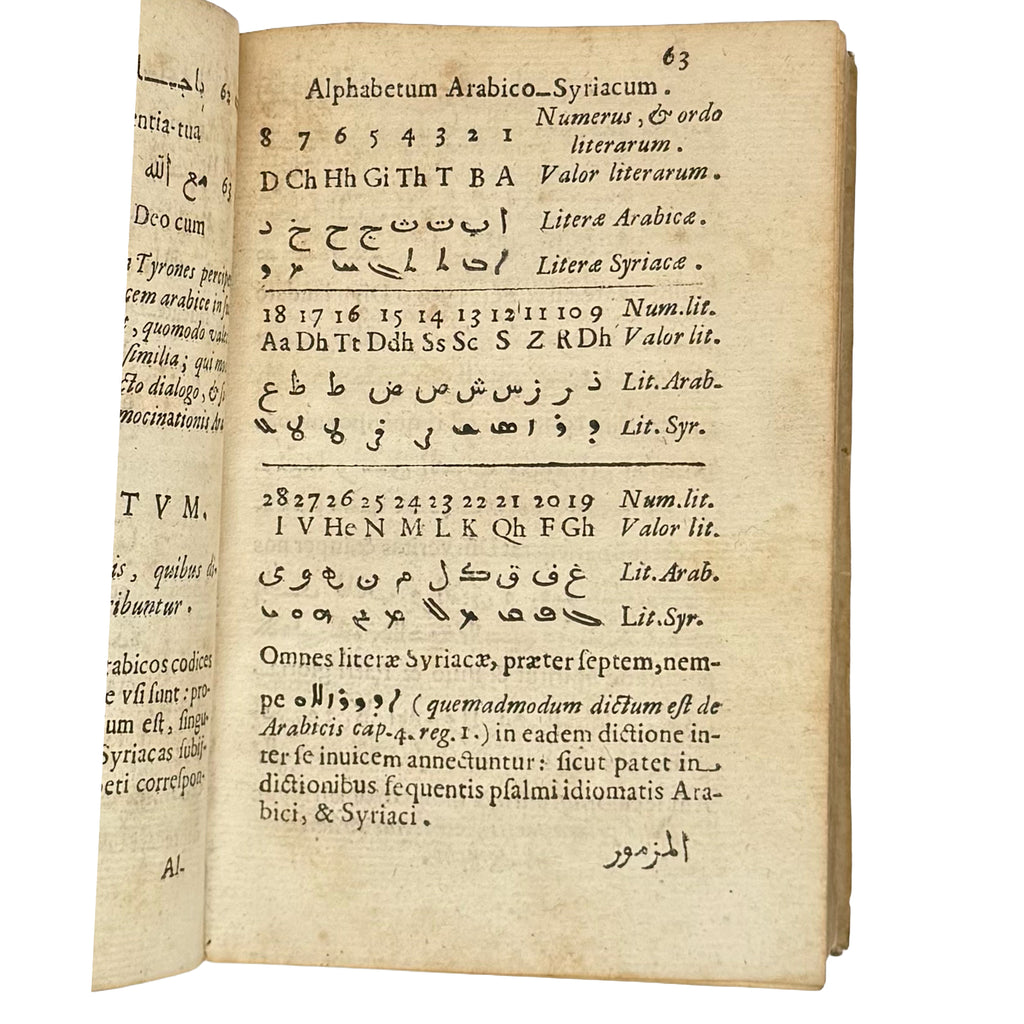 باجي 62
entia-tua
مع الله 63
Deo cum
Tyrones
cem arabice in
, quomodo
ſimilia; qui
cto dialogo, &
mocinationis
T V M.
is, quibus di-
ribuntur.
rabicos codices
e vſi ſunt: pro-
um eſt, ſingu-
Syriacas ſubij-
beti correſpon-
Al-
63
Alphabetum Arabico-Syriacum.
8 7 6 5 4 3 2 1 Numerus, & ordo
literarum.
D Ch Hh Gi Th T B A Valor literarum.
ا ب ت ث ج ح خ د Literæ Arabicæ.
Literæ Syriacæ.
18 17 16 15 14 13 12 11 10 9 Num.lit.
Aa Dh Tt Ddh Ss Sc S Z R Dh Valor lit.
ذ ر ز س ش ص ض ط ظ ع Lit. Arab-
Lit. Syr.
28 27 26 25 24 23 22 21 20 19 Num.lit.
I V He N M L K Qh F Gh Valor lit.
غ ف ق ك ل م ن ه و ي Lit. Arab.
Lit. Syr.
Omnes literæ Syriacæ, præter ſeptem, nem-
pe (quemadmodum dictum eſt de
Arabicis cap.4. reg. 1.) in eadem dictione in-
ter ſe inuicem annectuntur: ſicut patet in
dictionibus ſequentis pſalmi idiomatis Ara-
bici, & Syriaci.
المزمور